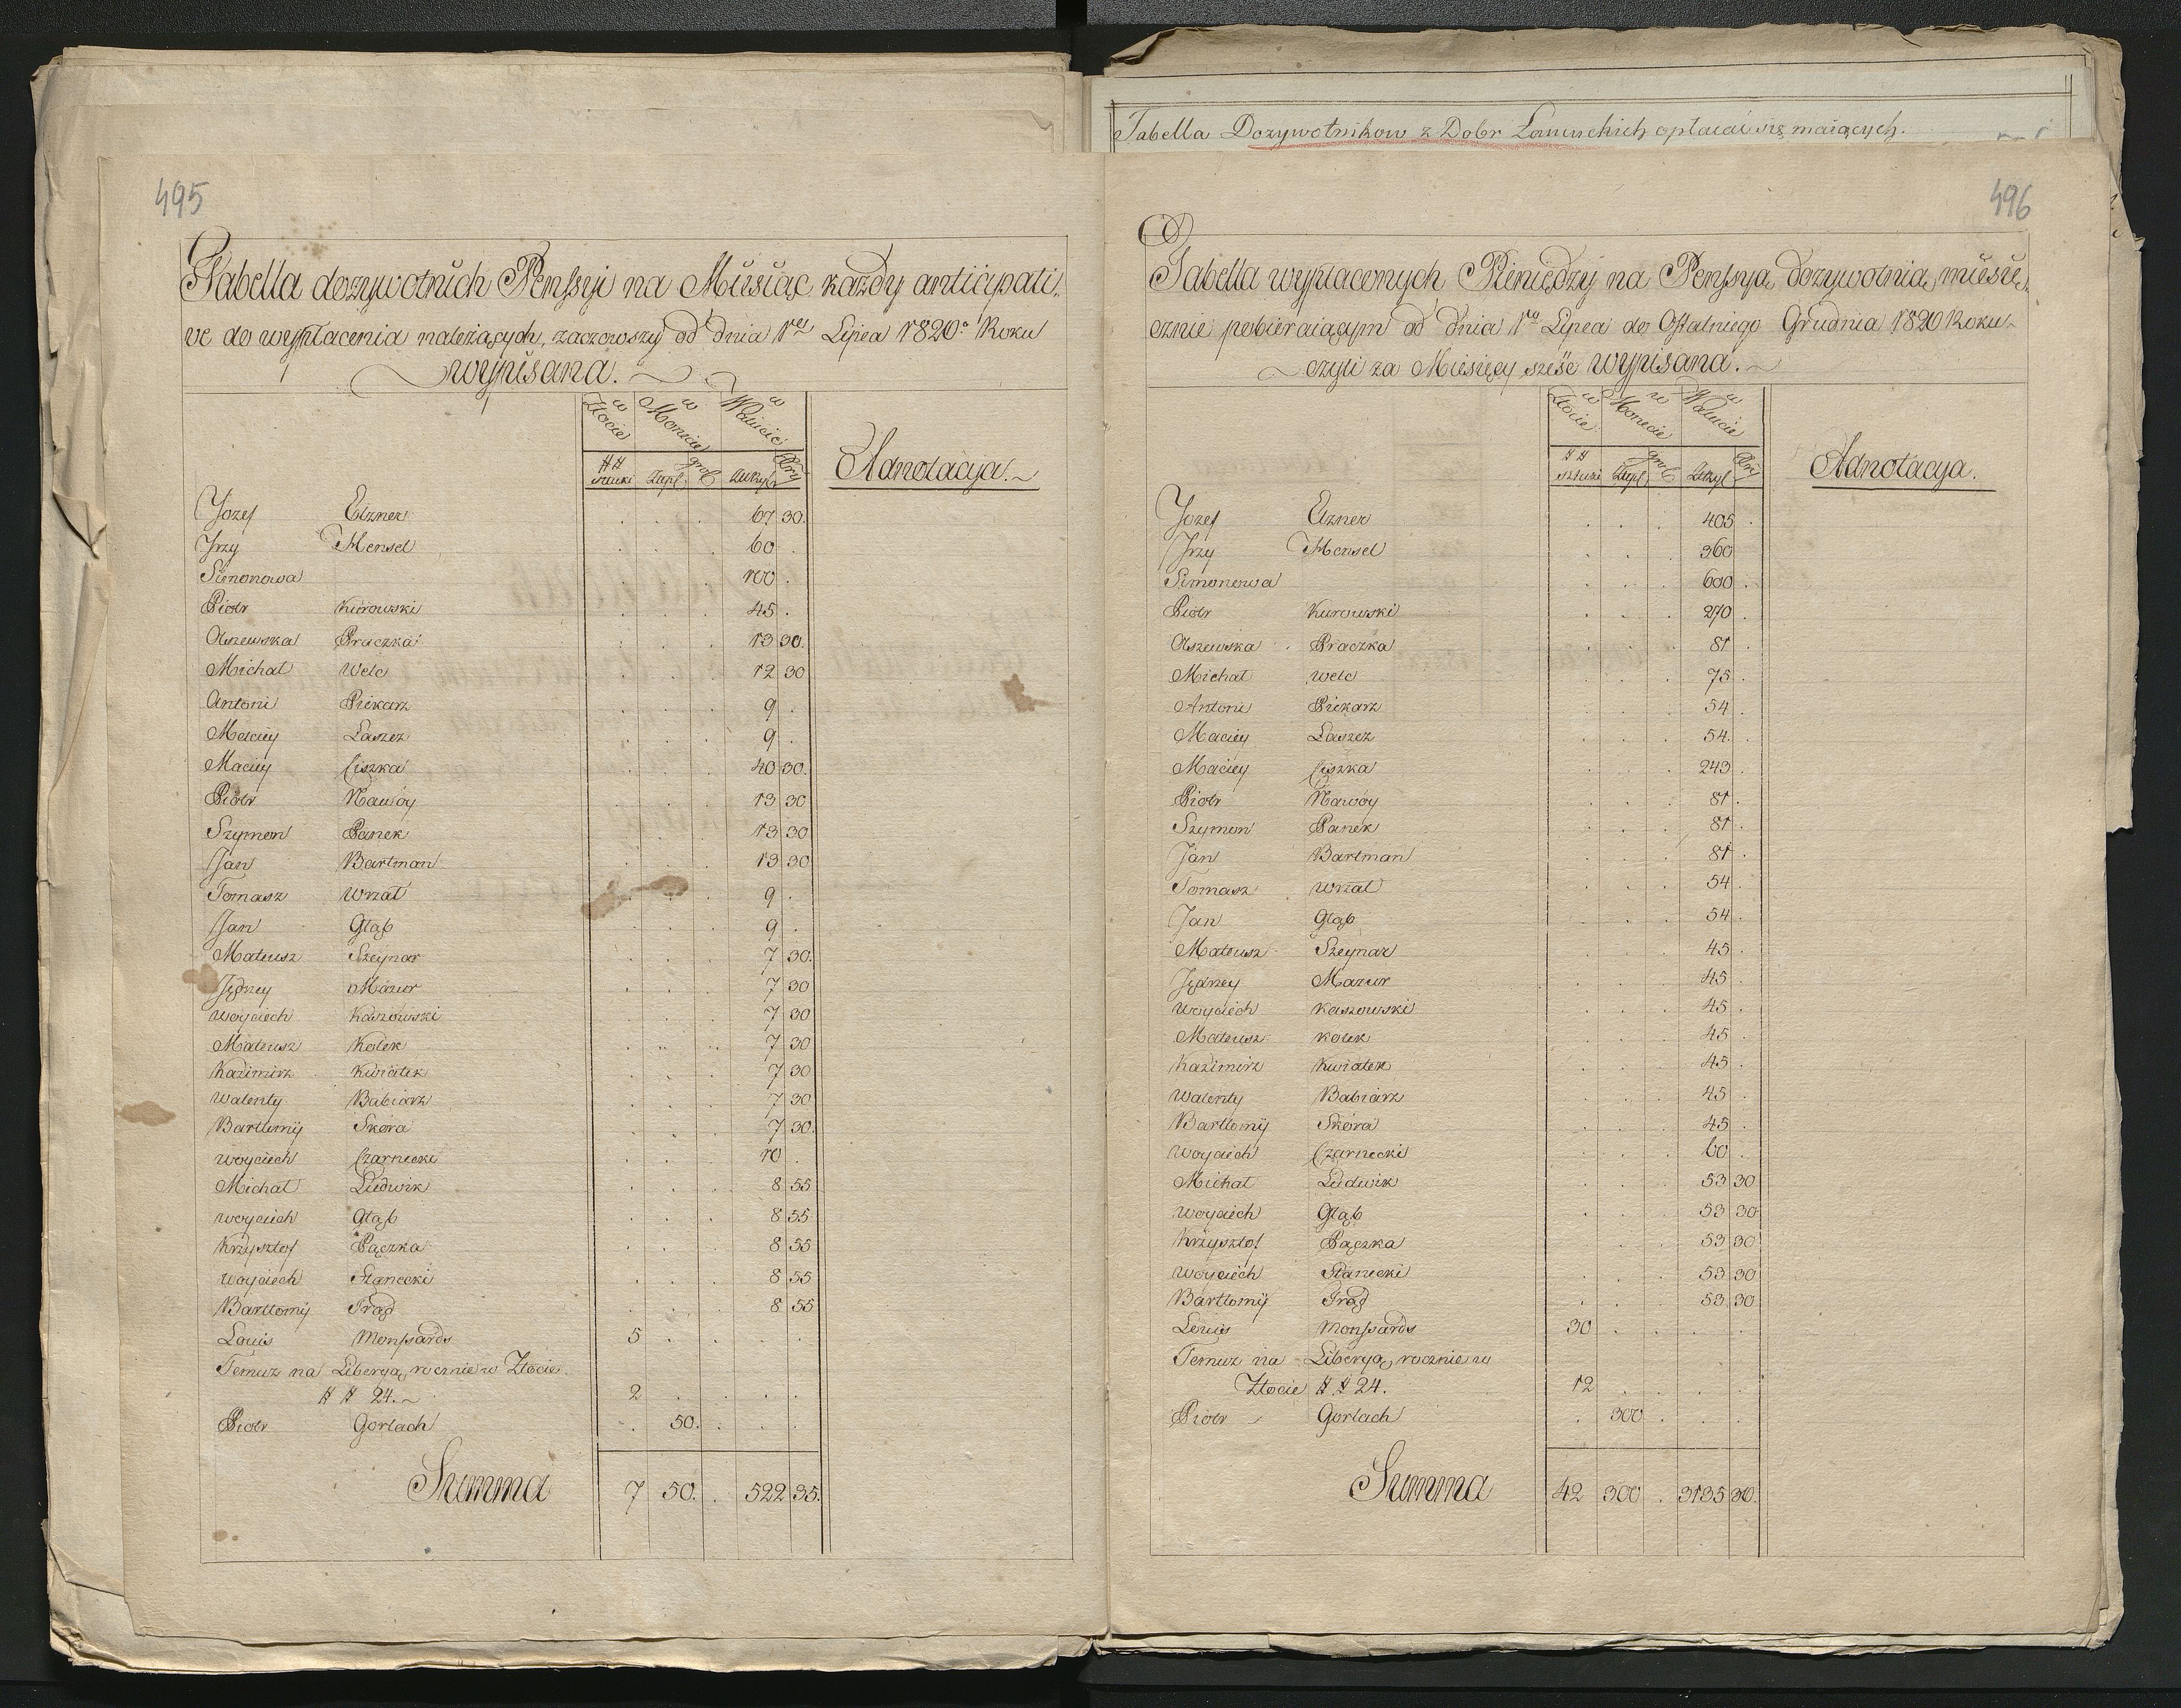 495
Tabella dozywotnich Pensyi na Miesiąc każdy anticipati,
ve do wypłacenia należących, zacząwszy od dnia 1go Lipca 1820o Roku
wypisana.
w Złocie w Monecie w Walucie
## sztuki Złpl. gro. Złrhyl. Xry
Adnotacya.
Jozef Elzner . . . 67 30.
Jrzy Mensel . . . 60 .
Simonowa . . . 100 .
Piotr Kurowski . . . 45 .
Olszewska Praczka . . . 13 30.
Michał Welc . . . 12 30
Antoni Piekarz . . . 9 .
Maciey Laszcz . . . 9 .
Maciey Ciszka . . . 40 30.
Piotr Nawoy . . . 13 30
Szymon Panek . . . 13 30
Jan Bartman . . . 13 30
Tomasz Wrzał . . . 9 .
Jan Głąb . . . 9 .
Mateusz Szeynar . . . 7 30.
Jędrzey Mazur . . . 7 30
Woyciech Kaszowski . . . 7 30
Mateusz Kolek . . . 7 30
Kazimirz Kwiatek . . . 7 30
Walenty Babiarz . . . 7 30
Bartłomiy Skora . . . 7 30.
Woyciech Czarnecki . . . 10 .
Michał Ludwik . . . 8 55
Woyciech Głąb . . . 8 55
Krzysztof Pączka . . . 8 55
Woyciech Stanecki . . . 8 55
Bartłomiy Prąd . . . 8 55
Louis Monssards 5 . . . .
Temuz na Liberyą rocznie w Złocie
## 24. 2 . . . .
Piotr Gorlach . 50. . . .
Summa 7 50. . 522 35.
Tabella Dozywotnikow z Dobr Lancuckich opłacać się maiących.
496
Tabella wypłaconych Pieniędzy na Pensyą dozywotnią, miesię,
cznie pobieraiącym od dnia 1go Lipca do Ostatniego Grudnia 1820 Roku
czyli za Miesięcy sześć wypisana.
w Złocie w Monecie w Walucie
## sztuki Złpl. gro. Złrhyl. Xry
Adnotacya.
Jozef Elzner . . . 405 .
Jrzy Mensel . . . 360
Simonowa . . . 600 .
Piotr Kurowski . . . 270 .
Olszewska Praczka . . . 81 .
Michał Welc . . . 75 .
Antoni Piekarz . . . 54 .
Maciey Laszcz . . . 54. .
Maciey Ciszka . . . 243 .
Piotr Nawoy . . . 81 .
Szymon Panek . . . 81 .
Jan Bartman . . . 81 .
Tomasz Wrzał . . . 54 .
Jan Głąb . . . 54 .
Mateusz Szeynar . . . 45 .
Jędrzey Mazur . . . 45 .
Woyciech Kaszowski . . . 45 .
Mateusz Kolek . . . 45 .
Kazimirz Kwiatek . . . 45 .
Walenty Babiarz . . . 45 .
Bartłomiy Skora . . . 45 .
Woyciech Czarnecki . . . 60 .
Michał Ludwik . . . 53 30
Woyciech Głąb . . . 53 30
Krzysztof Pączka . . . 53 30
Woyciech Stanecki . . . 53 30
Bartłomiy Prąd . . . 53 30
Louis Monssards 30 . . . .
Temuz na Liberyą rocznie w
Złocie ## 24. 12 . . . .
Piotr Gorlach . 300 . . .
Summa 42 300 . 3135 30.